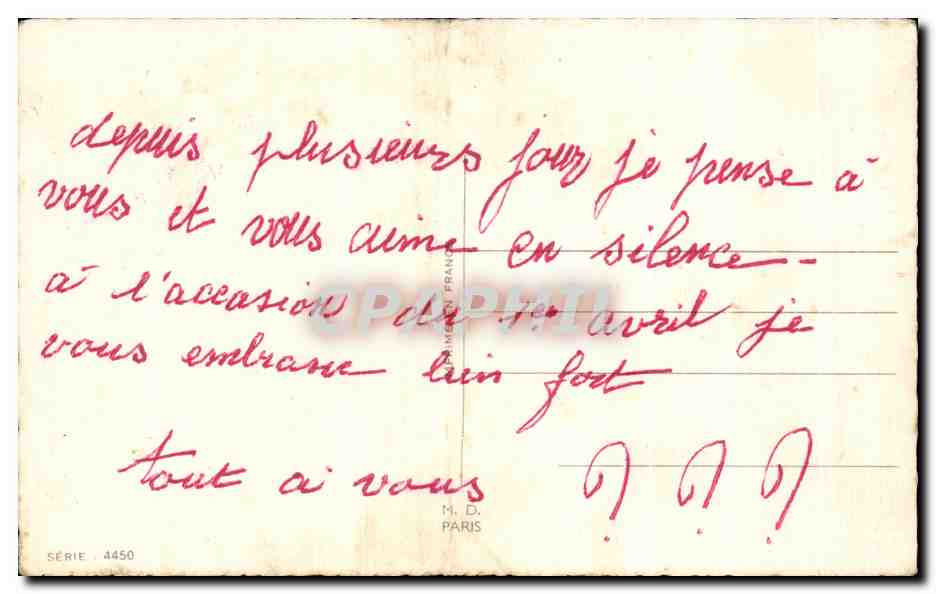 depuis plusieurs jour je pense à
vous et vous aime en silence -
à l'accasion du 1er avril je
vous embrasse bien fort
tout à vous ? ? ?
IMPRIMÉ EN FRANCE
CPAPHIL
M. D.
PARIS
SÉRIE . 4450